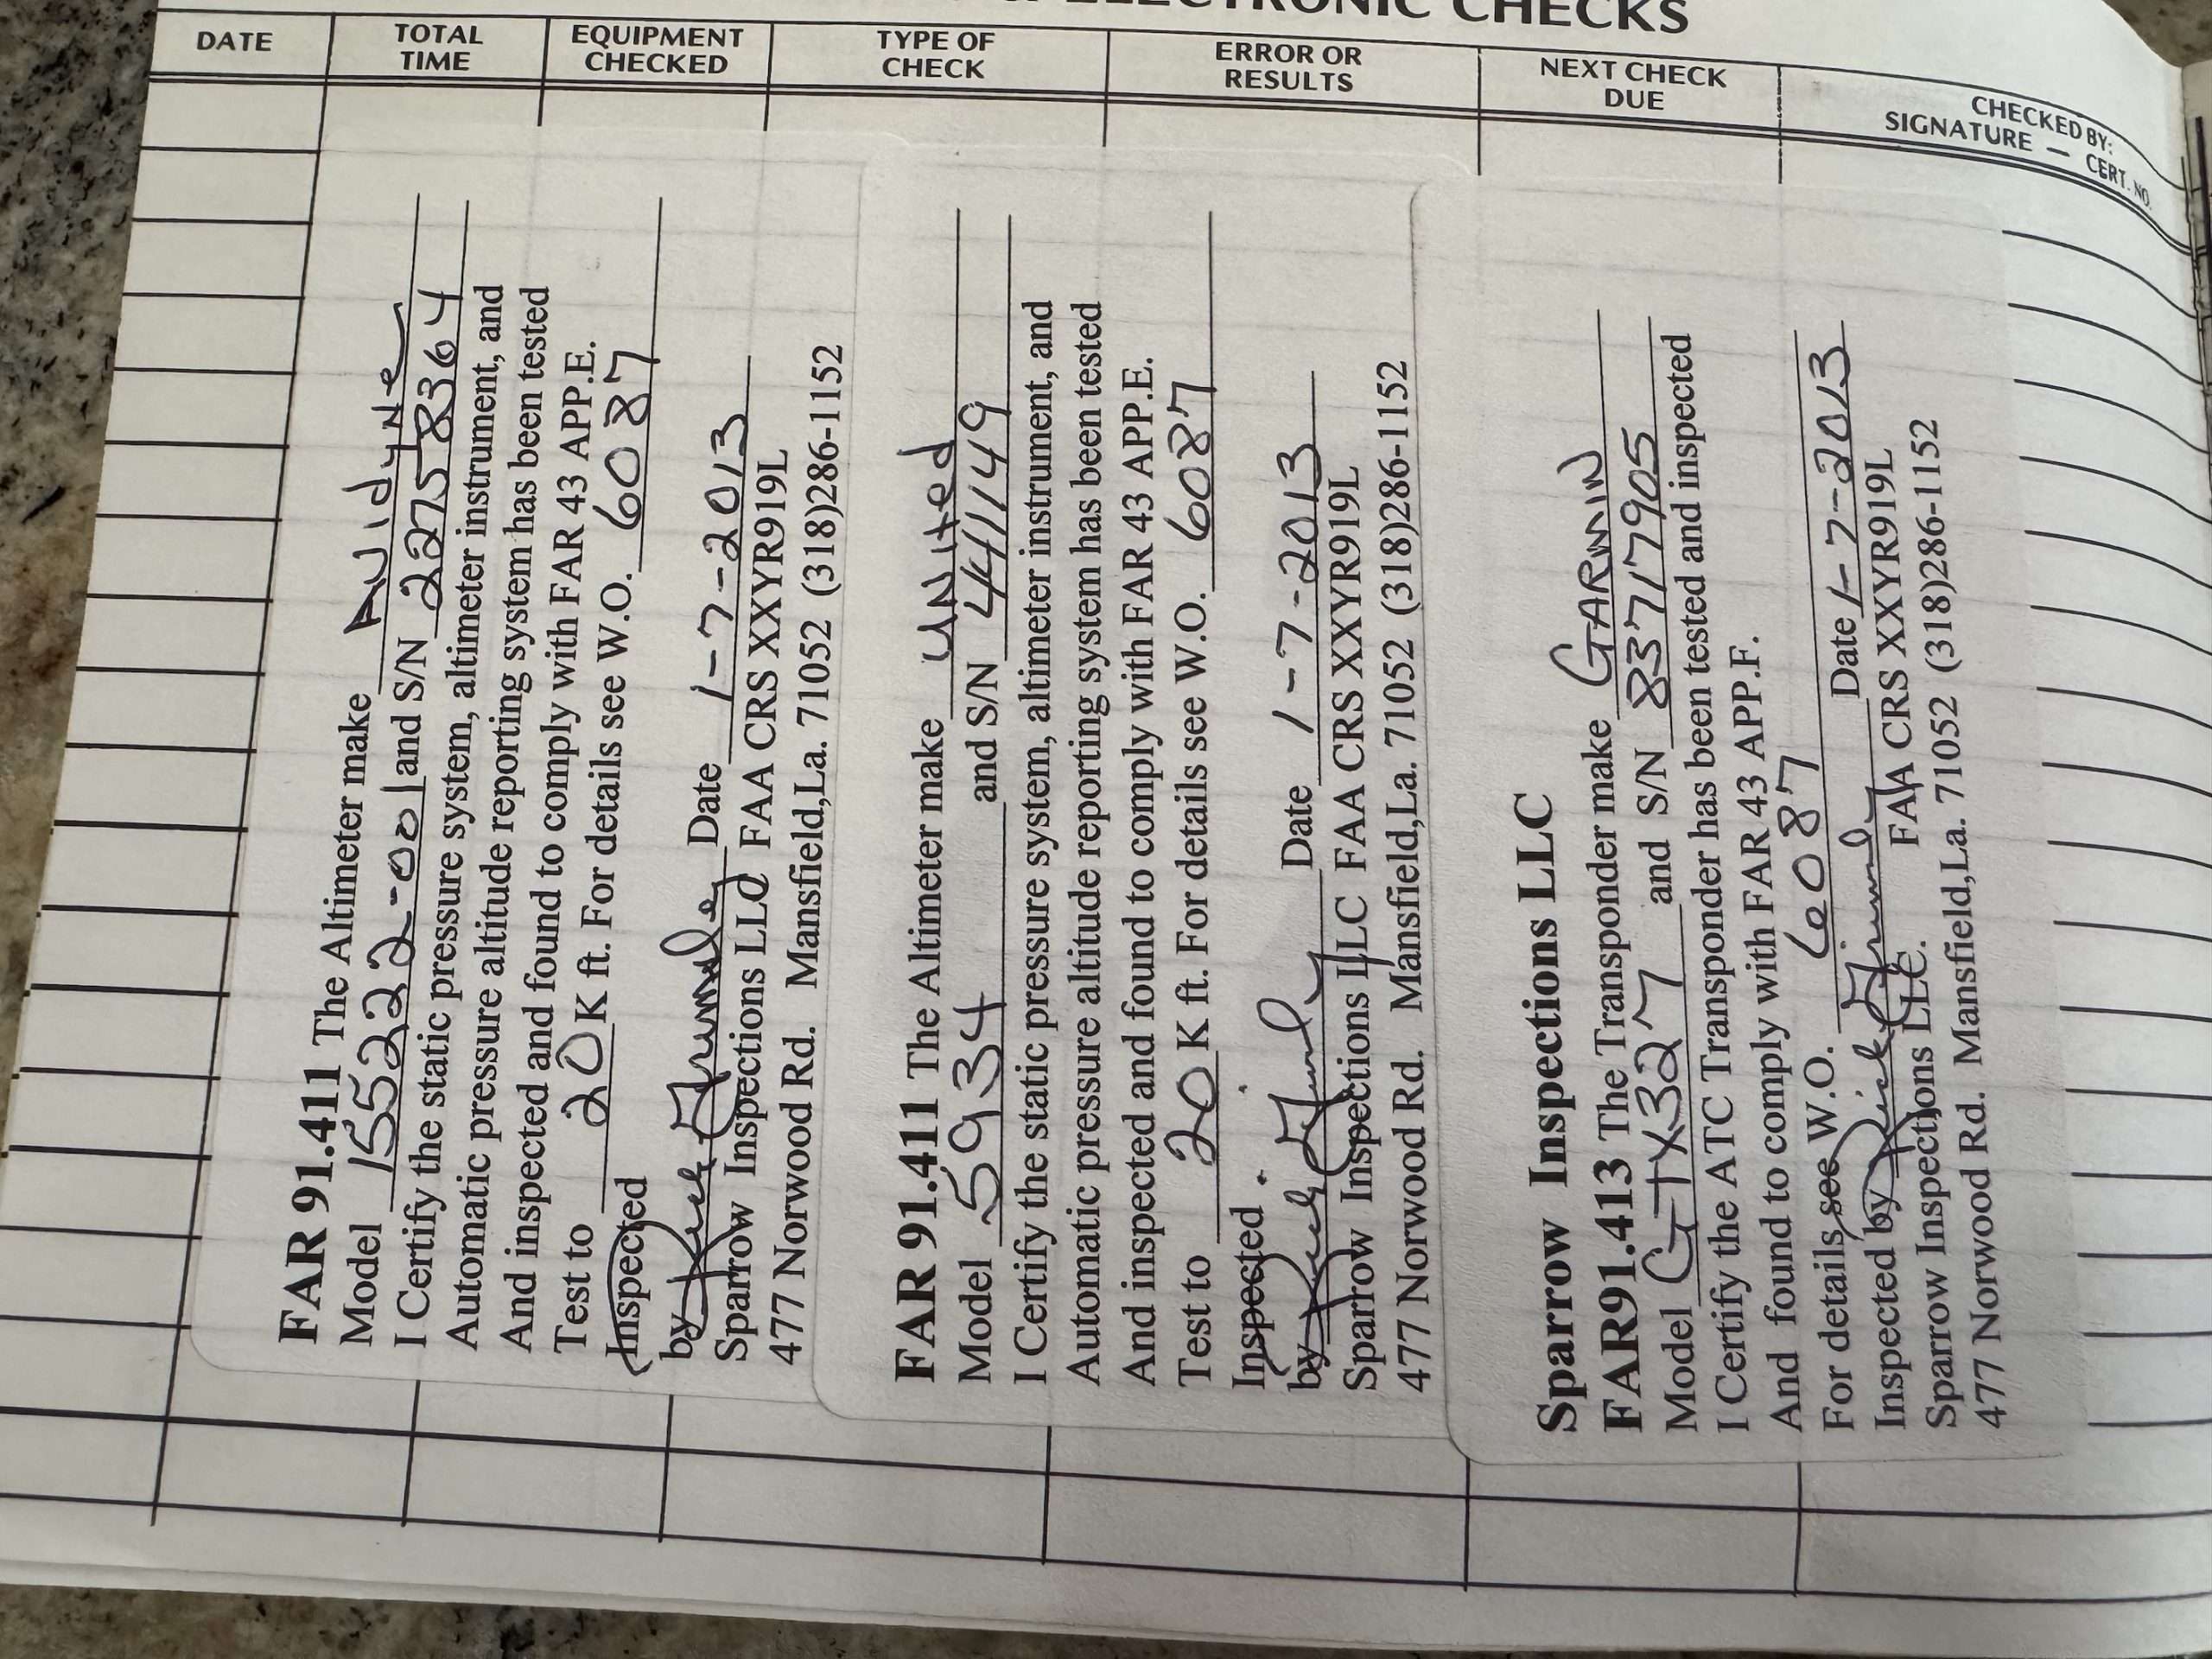 & ELECTRONIC CHECKS
DATE
TOTAL TIME
EQUIPMENT CHECKED
TYPE OF CHECK
ERROR OR RESULTS
NEXT CHECK DUE
CHECKED BY:
SIGNATURE — CERT. NO.
FAR 91.411 The Altimeter make Avidyne
Model 15522-001 and S/N 22758364
I Certify the static pressure system, altimeter instrument, and
Automatic pressure altitude reporting system has been tested
And inspected and found to comply with FAR 43 APP.E.
Test to 20 K ft. For details see W.O. 6087
Inspected
by Date 1-7-2013
Sparrow Inspections LLC FAA CRS XXYR919L
477 Norwood Rd. Mansfield,La. 71052 (318)286-1152
FAR 91.411 The Altimeter make UNited
Model 5934 and S/N 441149
I Certify the static pressure system, altimeter instrument, and
Automatic pressure altitude reporting system has been tested
And inspected and found to comply with FAR 43 APP.E.
Test to 20 K ft. For details see W.O. 6087
Inspected
by Date 1-7-2013
Sparrow Inspections LLC FAA CRS XXYR919L
477 Norwood Rd. Mansfield,La. 71052 (318)286-1152
Sparrow Inspections LLC
FAR91.413 The Transponder make GARMIN
Model GTX327 and S/N 83717905
I Certify the ATC Transponder has been tested and inspected
And found to comply with FAR 43 APP.F.
For details see W.O. 6087
Inspected by Date 1-7-2013
Sparrow Inspections LLC. FAA CRS XXYR919L
477 Norwood Rd. Mansfield,La. 71052 (318)286-1152